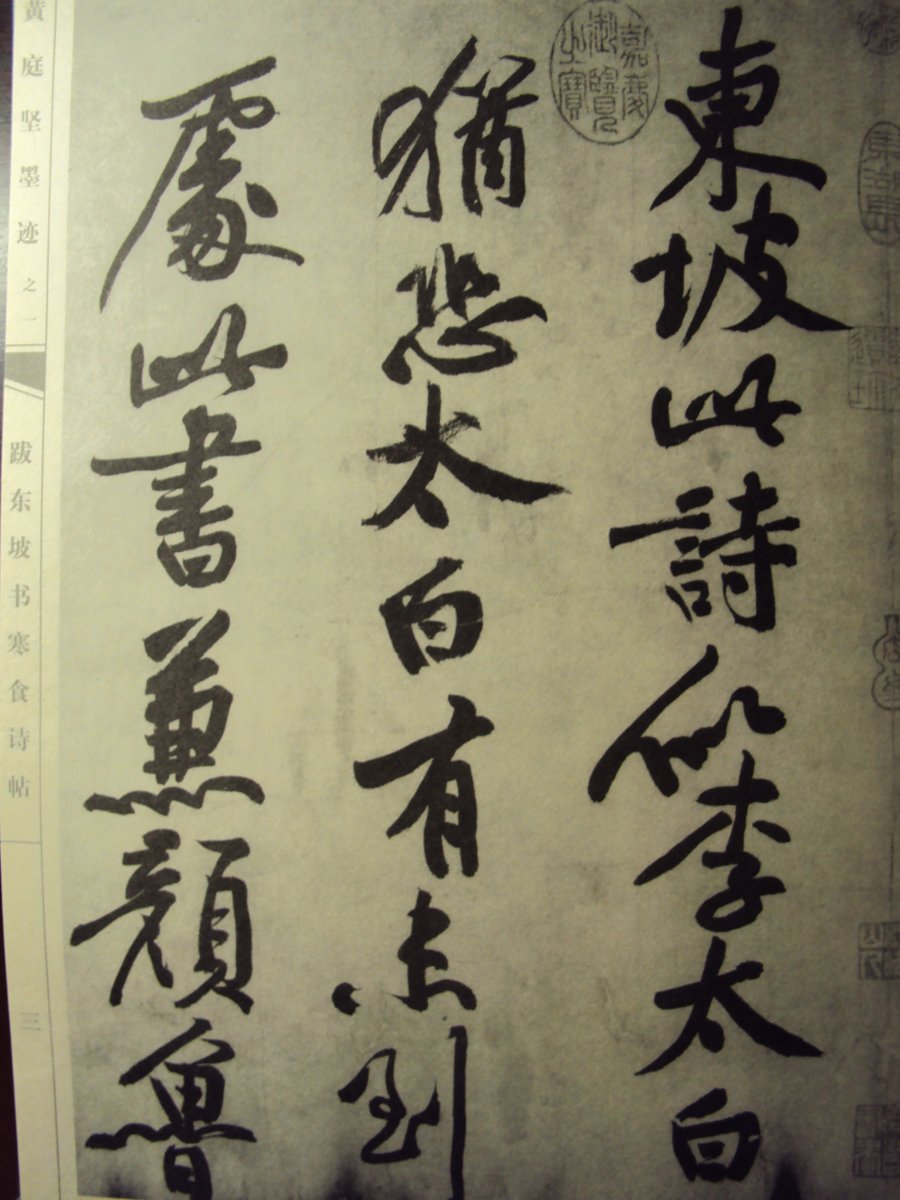 東坡此詩似李太白
猶恐太白有未到
處此書兼顏魯
嘉慶
御覽
之寶
黄庭坚墨迹之一
跋东坡书寒食诗帖
三